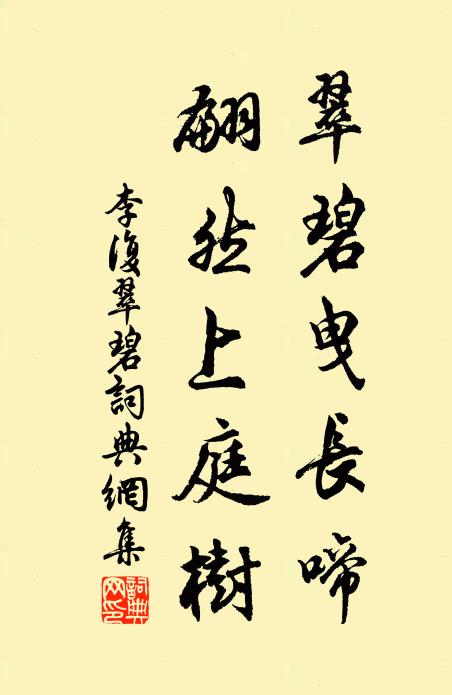 翠碧曳長啼
翩然上庭樹
李復翠碧詞典網集
詞典網印